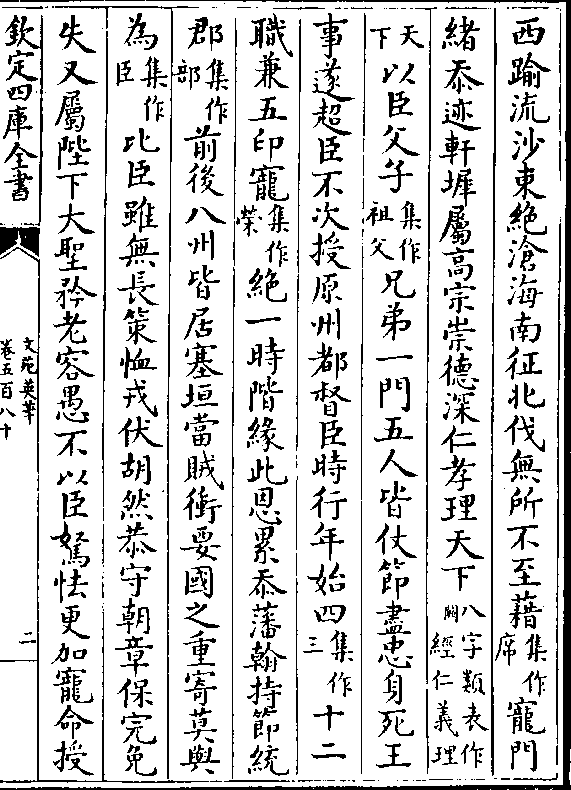 西踰流沙東絶滄海南征北伐無所不至藉集作席寵門
緒忝迹軒墀屬高宗崇德深仁孝理天下八字類表作闕經仁義理
天下以臣父子集作祖父兄弟一門五人皆仗節盡忠身死王
事遂超臣不次授原州都督臣時行年始四集作三十二
職兼五印寵集作榮絶一時階緣此恩累忝藩翰持節統
郡集作部前後八州皆居塞垣當賊衝要國之重寄莫與
為集作臣比臣雖無長策恤戎伏胡然恭守朝章保完免
失又屬陛下大聖矜老容愚不以臣駑怯更加寵命授
欽定四庫全書
文苑英華
卷五百八十
二